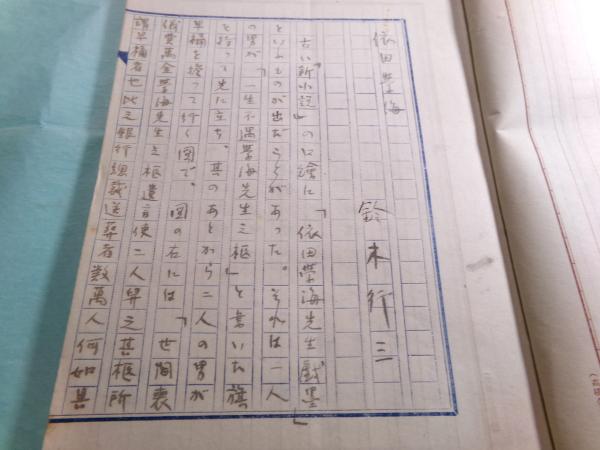 依田学海
鈴木行三
古い「新小説」の口絵に「依田学海先生戯墨」
といふものが出たことがあつた。それは一人
の男が「一生不遇学海先生之柩」と書いた旗
を持つて先に立ち、其のあとから二人の男が
早桶を擔つて行く図で、図の右には「世間喪
儀費萬金学海先生之柩遺言使二人舁之其柩所
謂早桶者也此之銀行總裁送葬者数萬人何如其